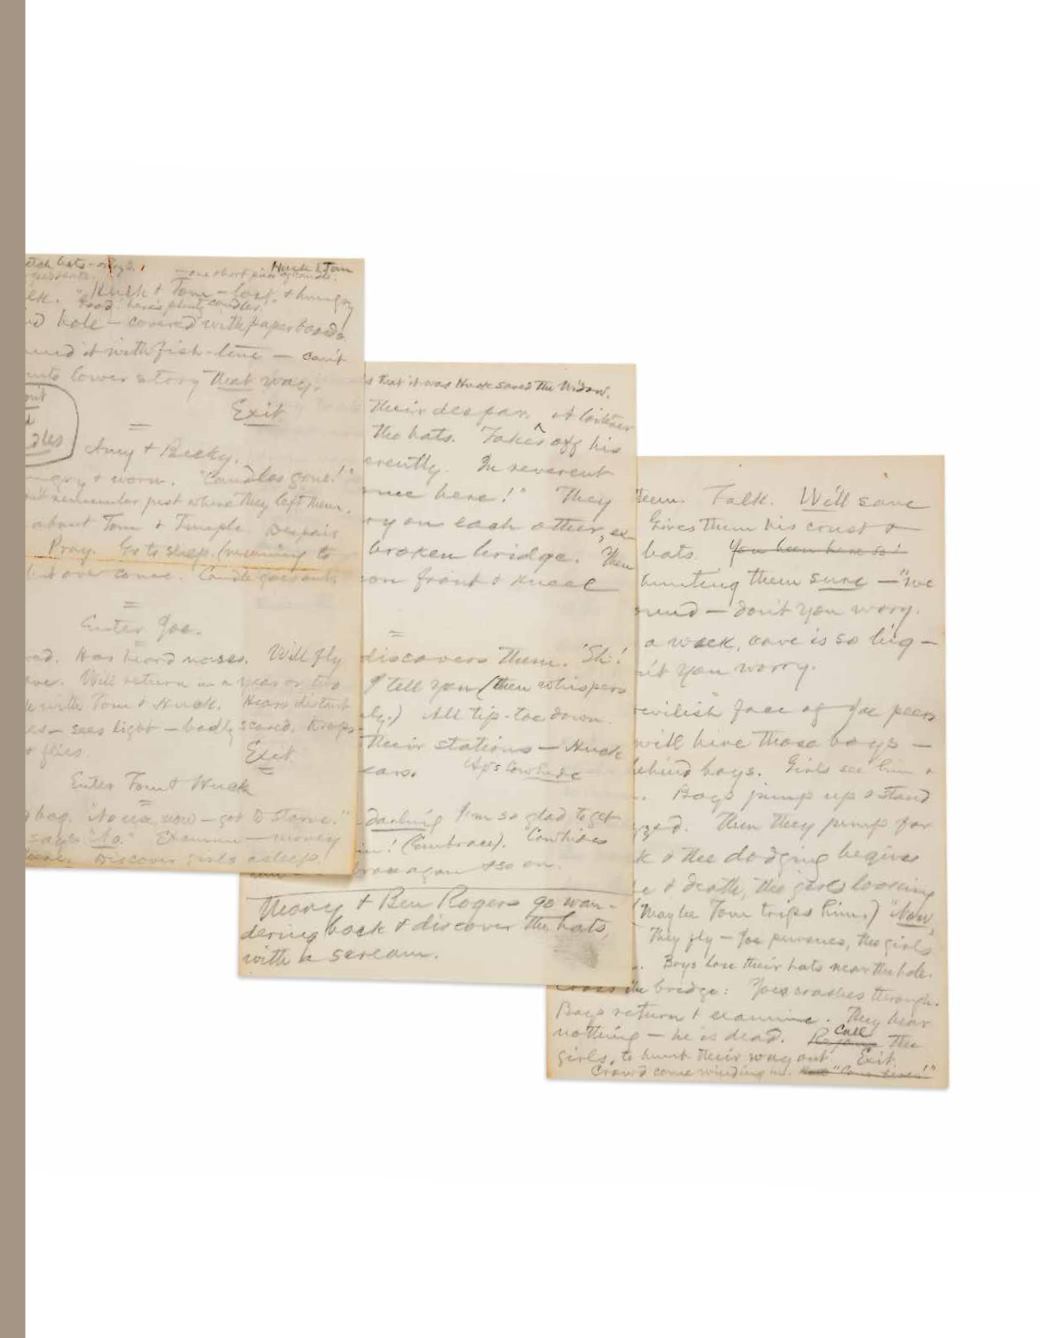 Huck & Tom
"Huck & Tom – lost, & hungry
hole – covered with paper boards.
it with fish-line – can't
lower story that way.
Exit
Amy & Becky.
& worn. "Candles gone!"
remember just where they left them.
about Tom & Temple. Despair
Pray. Go to sleep, (meaning to
over come. Candle goes out.
Enter Joe.
Has heard noises. Will fly
Will return in a year or two
with Tom & Huck. Hears distant
sees light – badly scared, drops
& flies.
Exit
Enter Tom & Huck
bag. No use, now – got to starve."
says "No." Examine – money
Discover girls asleep.
that it was Huck saved the Widow.
their despair.
the hats. Takes off his
In reverent
here!" They
on each other, ex-
broken bridge. Then
front & kneel
discovers them. "Sh!
I tell you (then whispers
All tip-toe down.
their stations – Huck
ears. Ap's Cowhide
darling I'm so glad to get
(Embrace). Cowhides
again & so on.
Mary & Ben Rogers go wan-
dering back & discover the hats,
with a scream.
Talk. We'll save
Gives them his crust &
hats. You been here so!
hunting them sure – "we
don't you worry.
a week, cave is so big –
you worry.
face of Joe peers
will hive those boys –
behind boys. Girls see him &
Boys jump up & stand
Then they jump for
& the dodging begins
& death, the girls looking
(Maybe Tom trips him.) "Now,
They fly – Joe pursues, the girls
Boys lose their hats near the hole.
Cross the bridge: Joe crashes through.
Boys return & examine. They hear
nothing – he is dead. Call the
girls, to hunt their way out. Exit.
Crowd come winding in.